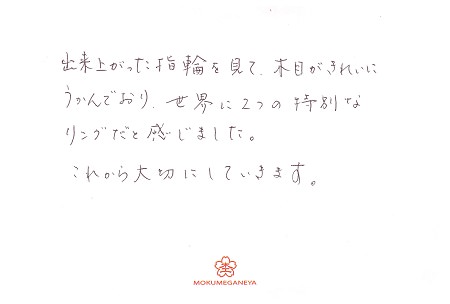 出来上がった指輪を見て、木目がきれいに
うかんでおり、世界に2つの特別な
リングだと感じました。
これから大切にしていきます。
MOKUMEGANEYA